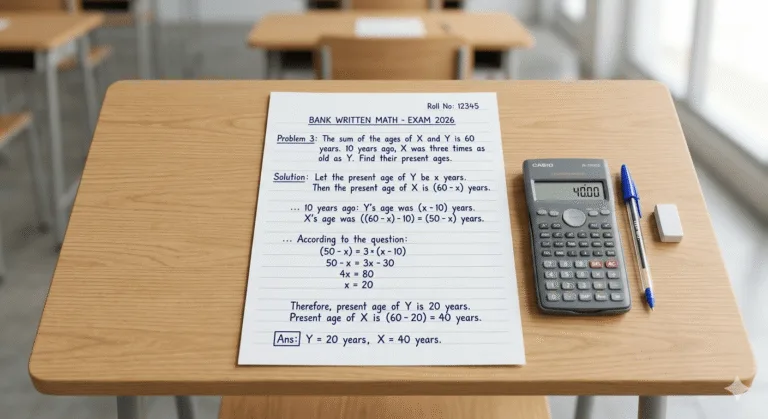 Roll No: 12345
BANK WRITTEN MATH - EXAM 2026
Problem 3: The sum of the ages of X and Y is 60
years. 10 years ago, X was three times as
old as Y. Find their present ages.
Solution: Let the present age of Y be x years.
Then the present age of X is (60 - x) years.
... 10 years ago: Y's age was (x - 10) years.
X's age was ((60 - x) - 10) = (50 - x) years.
... According to the question:
(50 - x) = 3 * (x - 10)
50 - x = 3x - 30
4x = 80
x = 20
Therefore, present age of Y is 20 years.
Present age of X is (60 - 20) = 40 years.
Ans: Y = 20 years, X = 40 years.
CASIO
40.00
AC